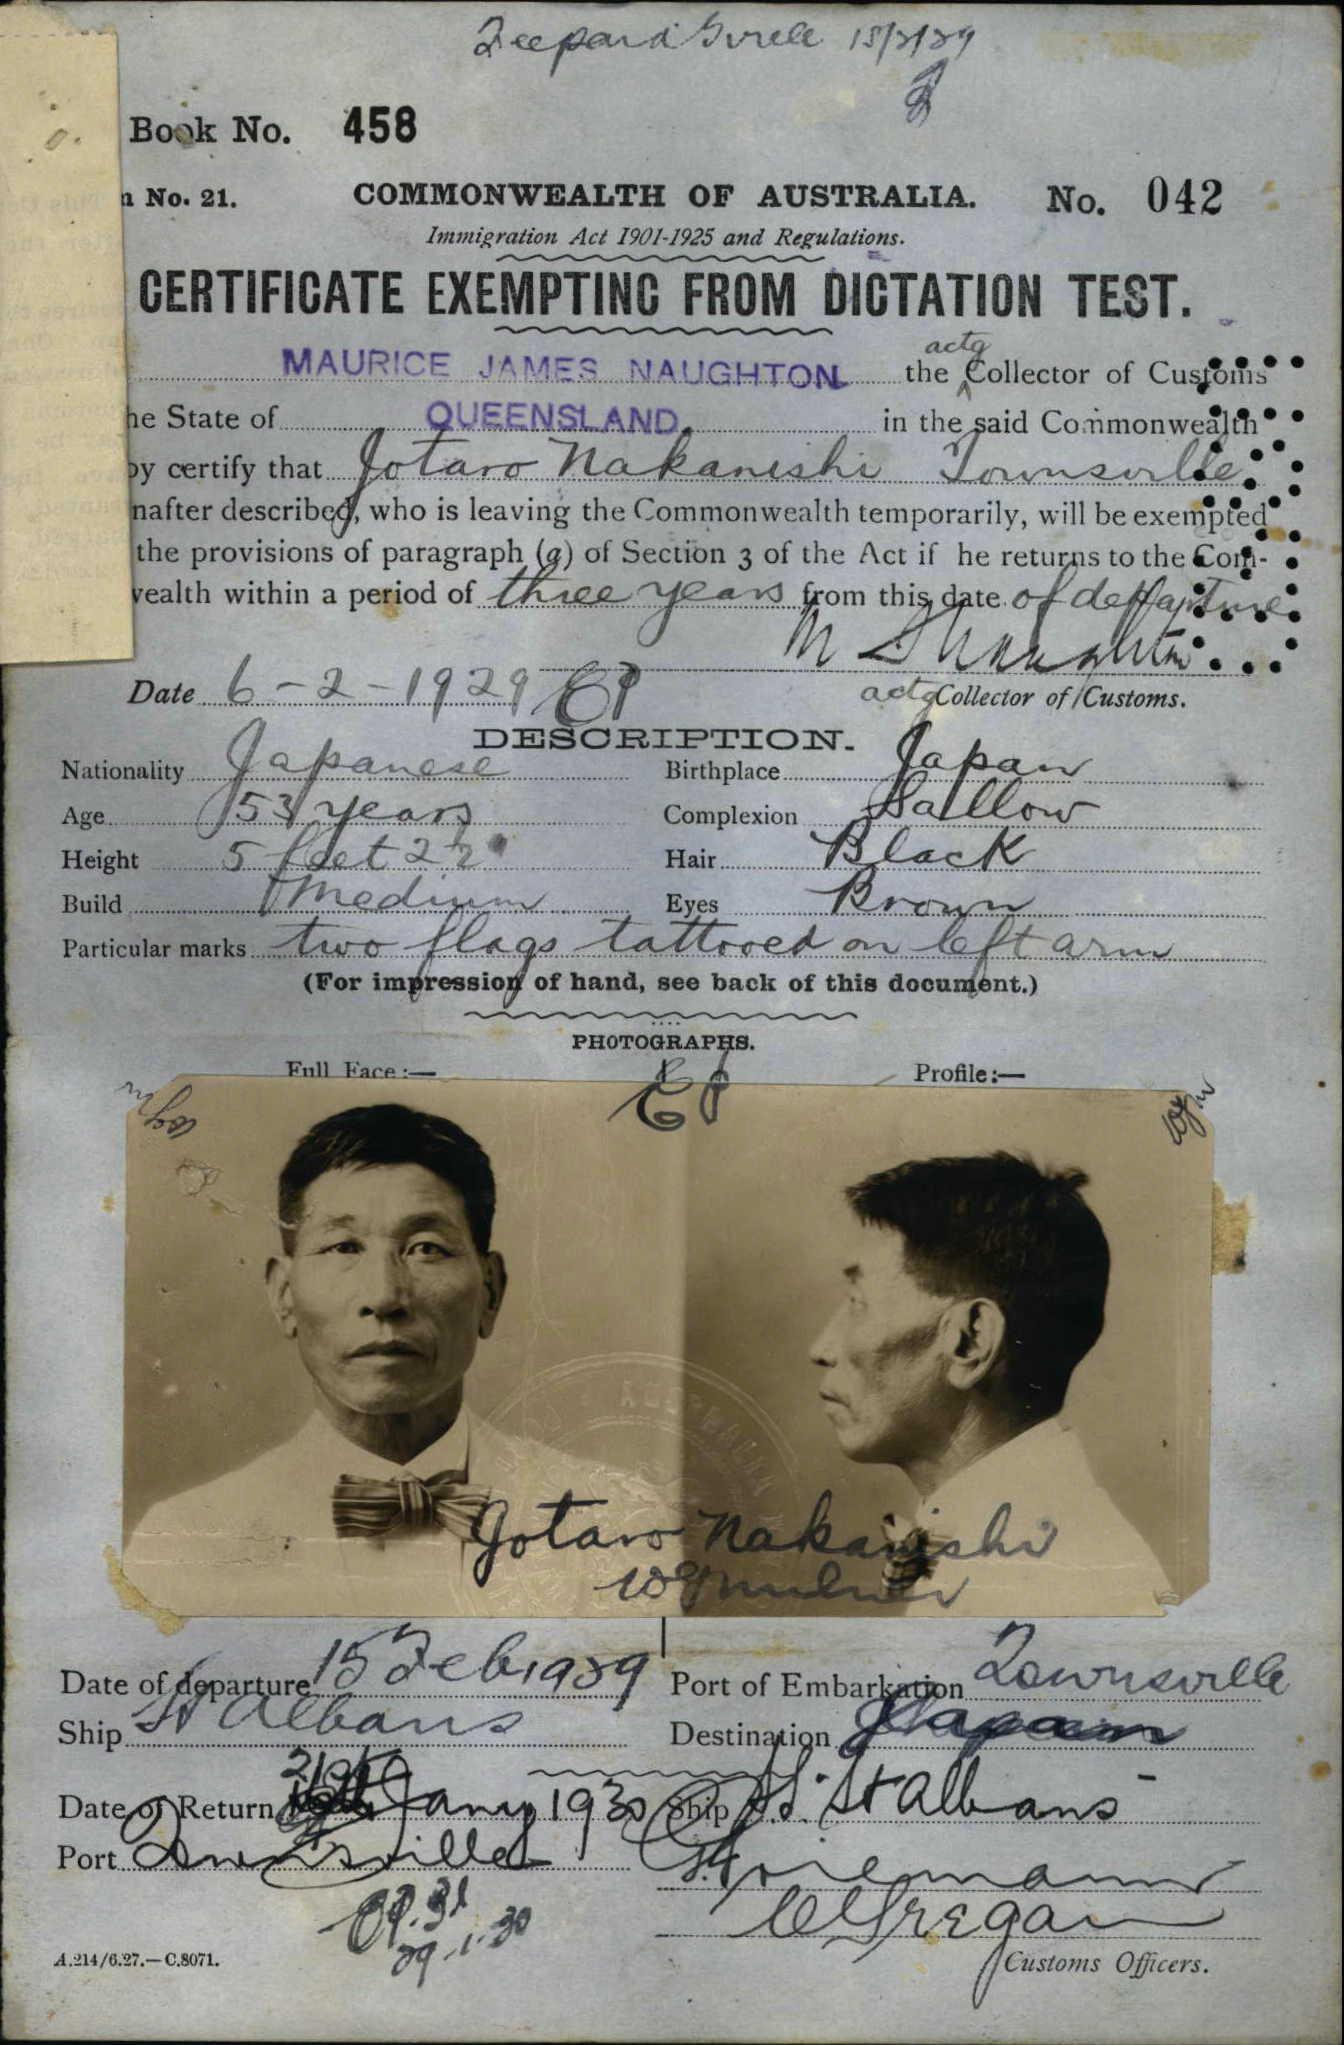 15/2/29
Book No. 458
No. 21. COMMONWEALTH OF AUSTRALIA. No. 042
Immigration Act 1901-1925 and Regulations.
CERTIFICATE EXEMPTING FROM DICTATION TEST.
MAURICE JAMES NAUGHTON the actg Collector of Customs
he State of QUEENSLAND. in the said Commonwealth
by certify that Jotaro Nakanishi Townsville
nafter described, who is leaving the Commonwealth temporarily, will be exempted
the provisions of paragraph (a) of Section 3 of the Act if he returns to the Com-
wealth within a period of three years from this date of departure
M J Naughton
Date 6-2-1929 actg Collector of Customs.
DESCRIPTION.
Nationality Japanese Birthplace Japan
Age 53 years Complexion Sallow
Height 5 feet 2½" Hair Black
Build Medium Eyes Brown
Particular marks two flags tattooed on left arm
(For impression of hand, see back of this document.)
PHOTOGRAPHS.
Full Face:— Profile:—
Jotaro Nakanishi
Date of departure 15 Feb 1929 Port of Embarkation Townsville
Ship St Albans Destination Japan
Date of Return Jany 1930 Ship SS. St Albans
Port Townsville
29-1-30
Customs Officers.
A.214/6.27.—C.8071.